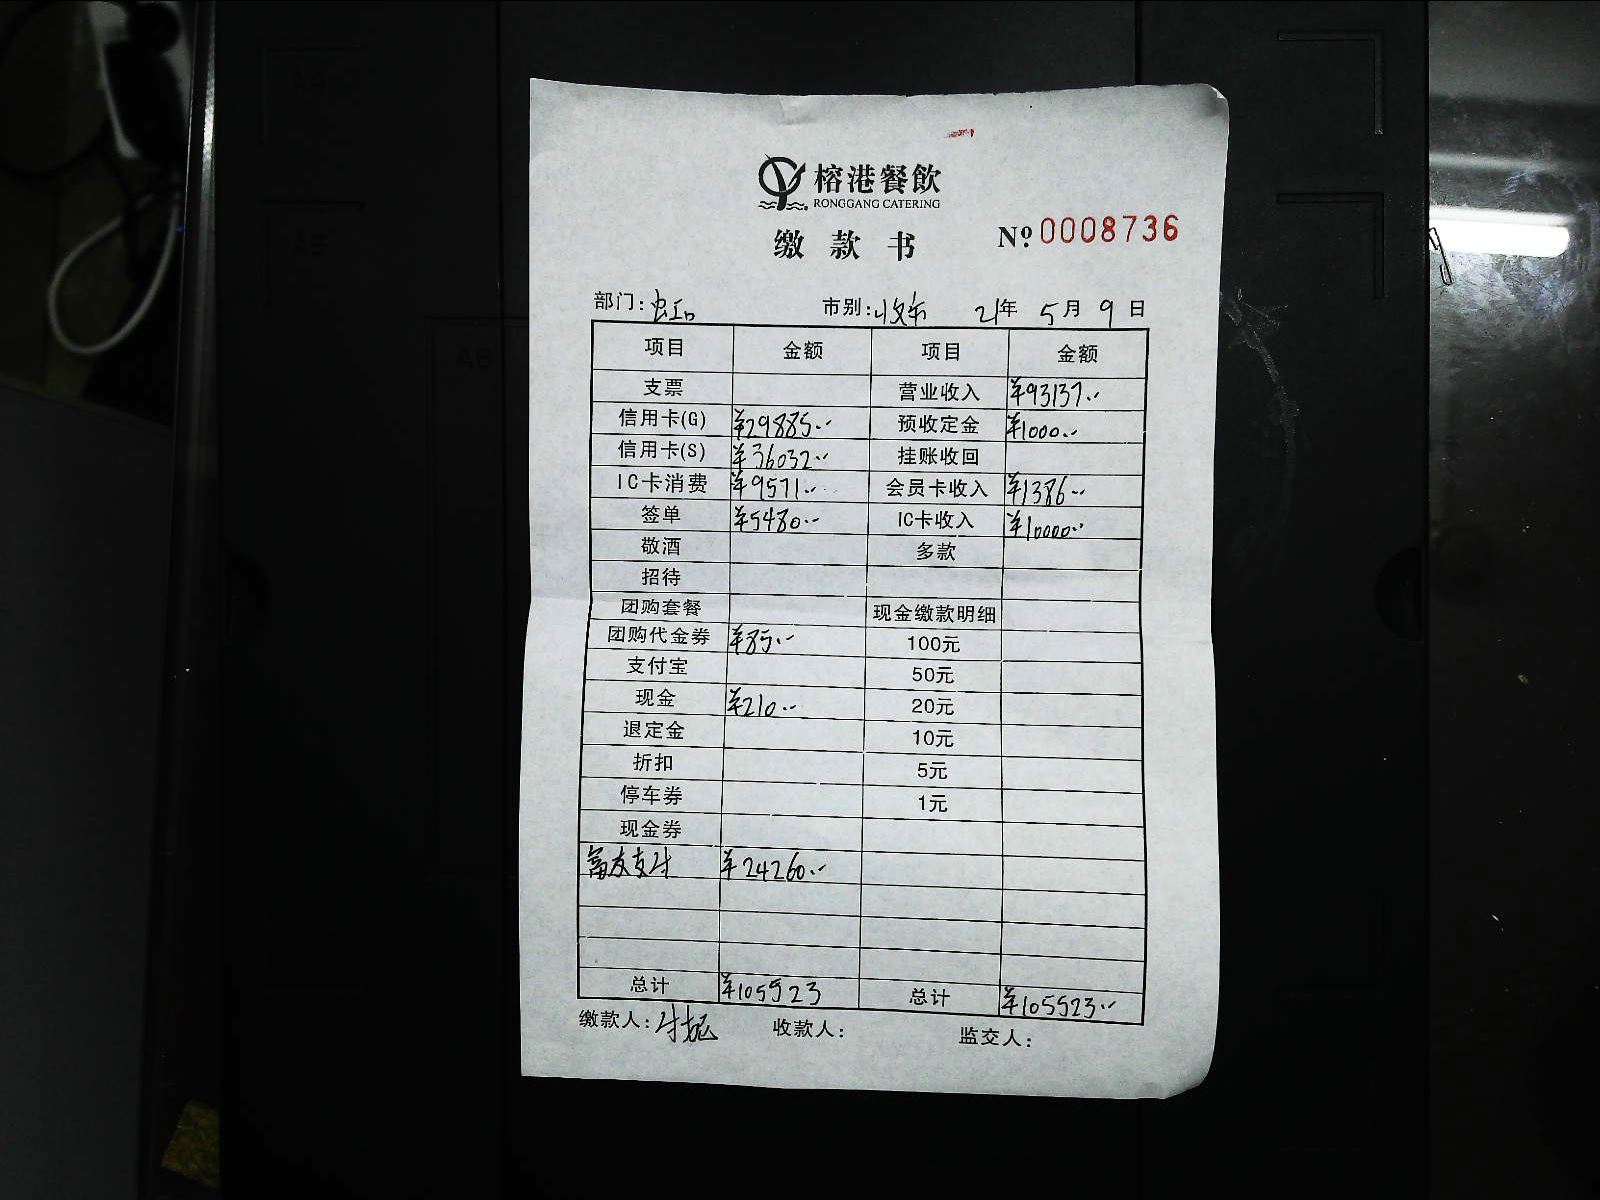 榕港餐飲
RONGGANG CATERING
缴款书 №0008736
部门: 虹口 市别: 收市 21年 5月 9日
项目 金额 项目 金额
支票 营业收入 ¥93137.--
信用卡(G) ¥29885.-- 预收定金 ¥1000.--
信用卡(S) ¥36032.-- 挂账收回
IC卡消费 ¥9571.-- 会员卡收入 ¥1386.--
签单 ¥5480.-- IC卡收入 ¥10000.--
敬酒 多款
招待
团购套餐 现金缴款明细
团购代金券 ¥85.-- 100元
支付宝 50元
现金 ¥210.-- 20元
退定金 10元
折扣 5元
停车券 1元
现金券
富友支付 ¥24260.--
总计 ¥105523 总计 ¥105523.--
缴款人: 收款人: 监交人: